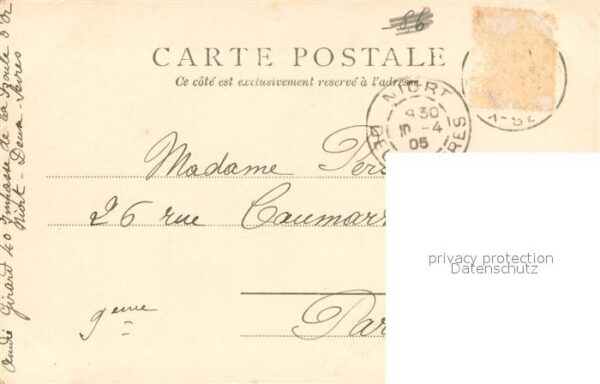 86
CARTE POSTALE
Ce côté est exclusivement reservé à l'adresse.
NIORT
8 30
10 -4
05
DEUX SEVRES
Madame Per
26 rue Caumar
9eme
Par
André Girard 40 Impasse de la Boule d'Or
Niort - Deux Sèvres
privacy protection
Datenschutz